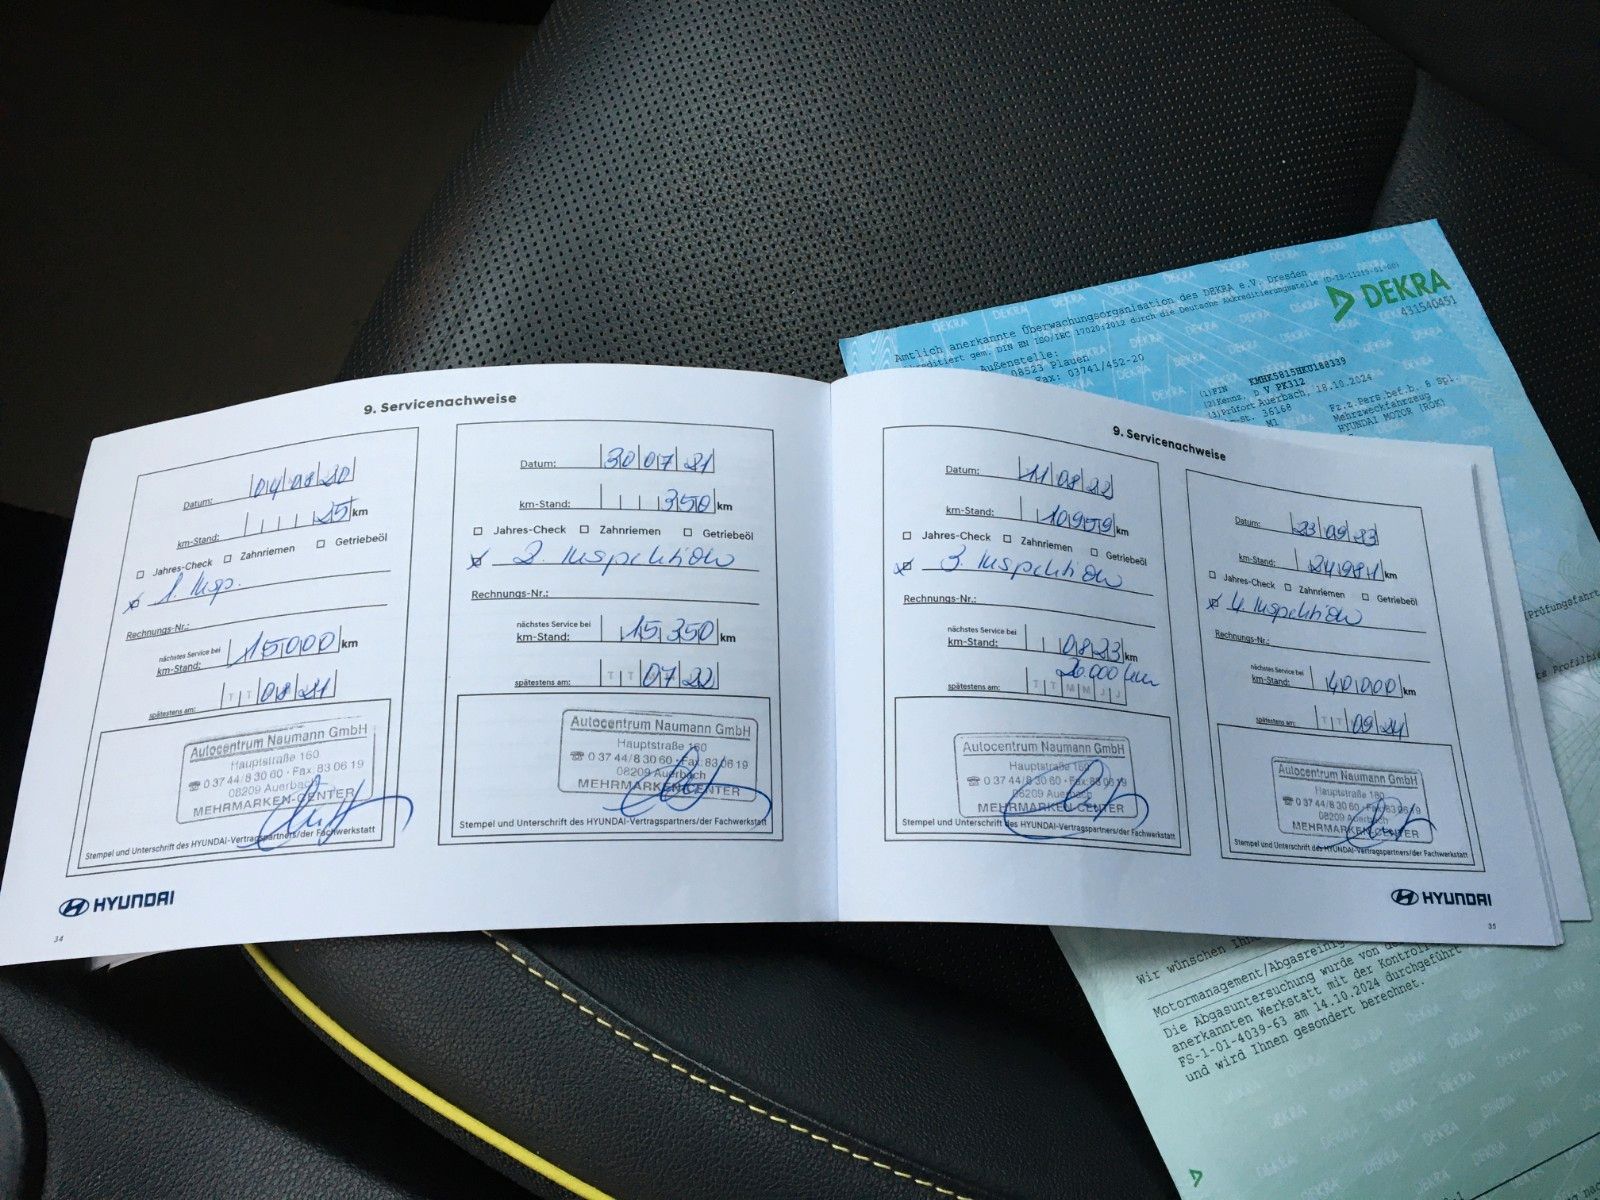 9. Servicenachweise
Datum: 04 08 20
km-Stand: 25 km
Jahres-Check Zahnriemen Getriebeöl
1. Insp.
Rechnungs-Nr.:
nächstes Service bei
km-Stand: 15000 km
spätestens am: T T 08 21
Autocentrum Naumann GmbH
Hauptstraße 160
☎ 0 37 44/8 30 60 · Fax: 83 06 19
08209 Auerbach
MEHRMARKEN-CENTER
Stempel und Unterschrift des HYUNDAI-Vertragspartners/der Fachwerkstatt
HYUNDAI
34
Datum: 30 07 21
km-Stand: 350 km
Jahres-Check Zahnriemen Getriebeöl
2. Inspektion
Rechnungs-Nr.:
nächstes Service bei
km-Stand: 15350 km
spätestens am: T T 07 22
Autocentrum Naumann GmbH
Hauptstraße 160
☎ 0 37 44/8 30 60 · Fax: 83 06 19
08209 Auerbach
MEHRMARKEN-CENTER
Stempel und Unterschrift des HYUNDAI-Vertragspartners/der Fachwerkstatt
9. Servicenachweise
Datum: 11 08 22
km-Stand: 10959 km
Jahres-Check Zahnriemen Getriebeöl
3. Inspektion
Rechnungs-Nr.:
nächstes Service bei
km-Stand: 08 23 km
26.000 km
spätestens am: T T M M J J
Autocentrum Naumann GmbH
Hauptstraße 160
☎ 0 37 44/8 30 60 · Fax: 83 06 19
08209 Auerbach
MEHRMARKEN-CENTER
Stempel und Unterschrift des HYUNDAI-Vertragspartners/der Fachwerkstatt
Datum: 23 09 23
km-Stand: 24981 km
Jahres-Check Zahnriemen Getriebeöl
4. Inspektion
Rechnungs-Nr.:
nächstes Service bei
km-Stand: 40000 km
spätestens am: T T 09 24
Autocentrum Naumann GmbH
Hauptstraße 160
☎ 0 37 44/8 30 60 · Fax: 83 06 19
08209 Auerbach
MEHRMARKEN-CENTER
Stempel und Unterschrift des HYUNDAI-Vertragspartners/der Fachwerkstatt
HYUNDAI
35
DEKRA
431540451
Amtlich anerkannte Überwachungsorganisation des DEKRA e.V. Dresden
gem. DIN EN ISO/IEC 17020:2012 durch die Deutsche Akkreditierungsstelle (D-IS-11219-01-00)
Außenstelle:
08523 Plauen
Fax: 03741/452-20
(1)FIN KMHK5815HKU188339
(2)Kennz. D V PK312
(3)Prüfort Auerbach, 18.10.2024
36168 Fz.z.Pers.bef.b. 8 Spl.
M1 Mehrzweckfahrzeug
HYUNDAI MOTOR (ROK)
Prüfungsfahrt
Wir wünschen
Motormanagement/Abgasreinig
Die Abgasuntersuchung wurde von de
anerkannten Werkstatt mit der Kontroll
FS-1-01-4039-63 am 14.10.2024 durchgeführt
und wird Ihnen gesondert berechnet.